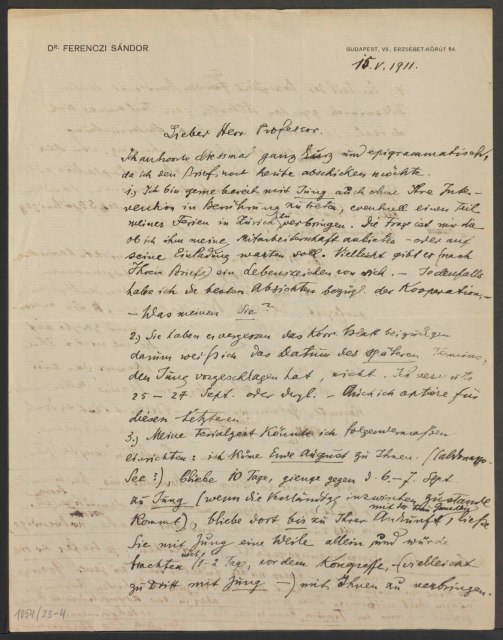 Dr. FERENCZI SÁNDOR
BUDAPEST, VII., ERZSÉBET-KÖRÚT 54.
15.V.1911.
Lieber Herr Professor.
Ich antworte diesmal ganz kurz und epigrammatisch,
da ich den Brief noch heute abschicken möchte.
1.) Ich bin gerne bereit mit Jung auch ohne Ihre Inter-
vention in Berührung zu treten, eventuell einen Teil
meiner Ferien in Zürich zu verbringen. Die Frage ist nur die
ob ich ihm meine Mitarbeiterschaft anbieten - oder auf
seine Einladung warten soll. Vielleicht gibt er (nach
Ihrem Briefe) ein Lebenszeichen von sich. - Jedenfalls
habe ich die besten Absichten bezügl. der Kooperation. -
- Was meinen Sie?
2.) Sie haben vergessen das Korr. Blatt beizulegen
darum weiss ich das Datum des späteren Termins,
den Jung vorgeschlagen hat, nicht. Ich vermute
25 - 27 Sept. oder dergl. - Auch ich optiere für
diesen letzteren.
3.) Meine Ferialzeit könnte ich folgendermassen
einrichten: ich käme Ende August zu Ihnen
See?), bliebe 10 Tage, gienge gegen d. 6.-7. Sept.
zu Jung (wenn die Verständigg inzwischen zustande
kommt), bliebe dort bis zu Ihrer Ankunft, liesse
Sie mit Jung eine Weile allein und würde
trachten noch 1-2 Tage, vor dem Kongresse, (vielleicht
zu Dritt mit Jung) mit Ihnen zu verbringen.
1054/23-4.